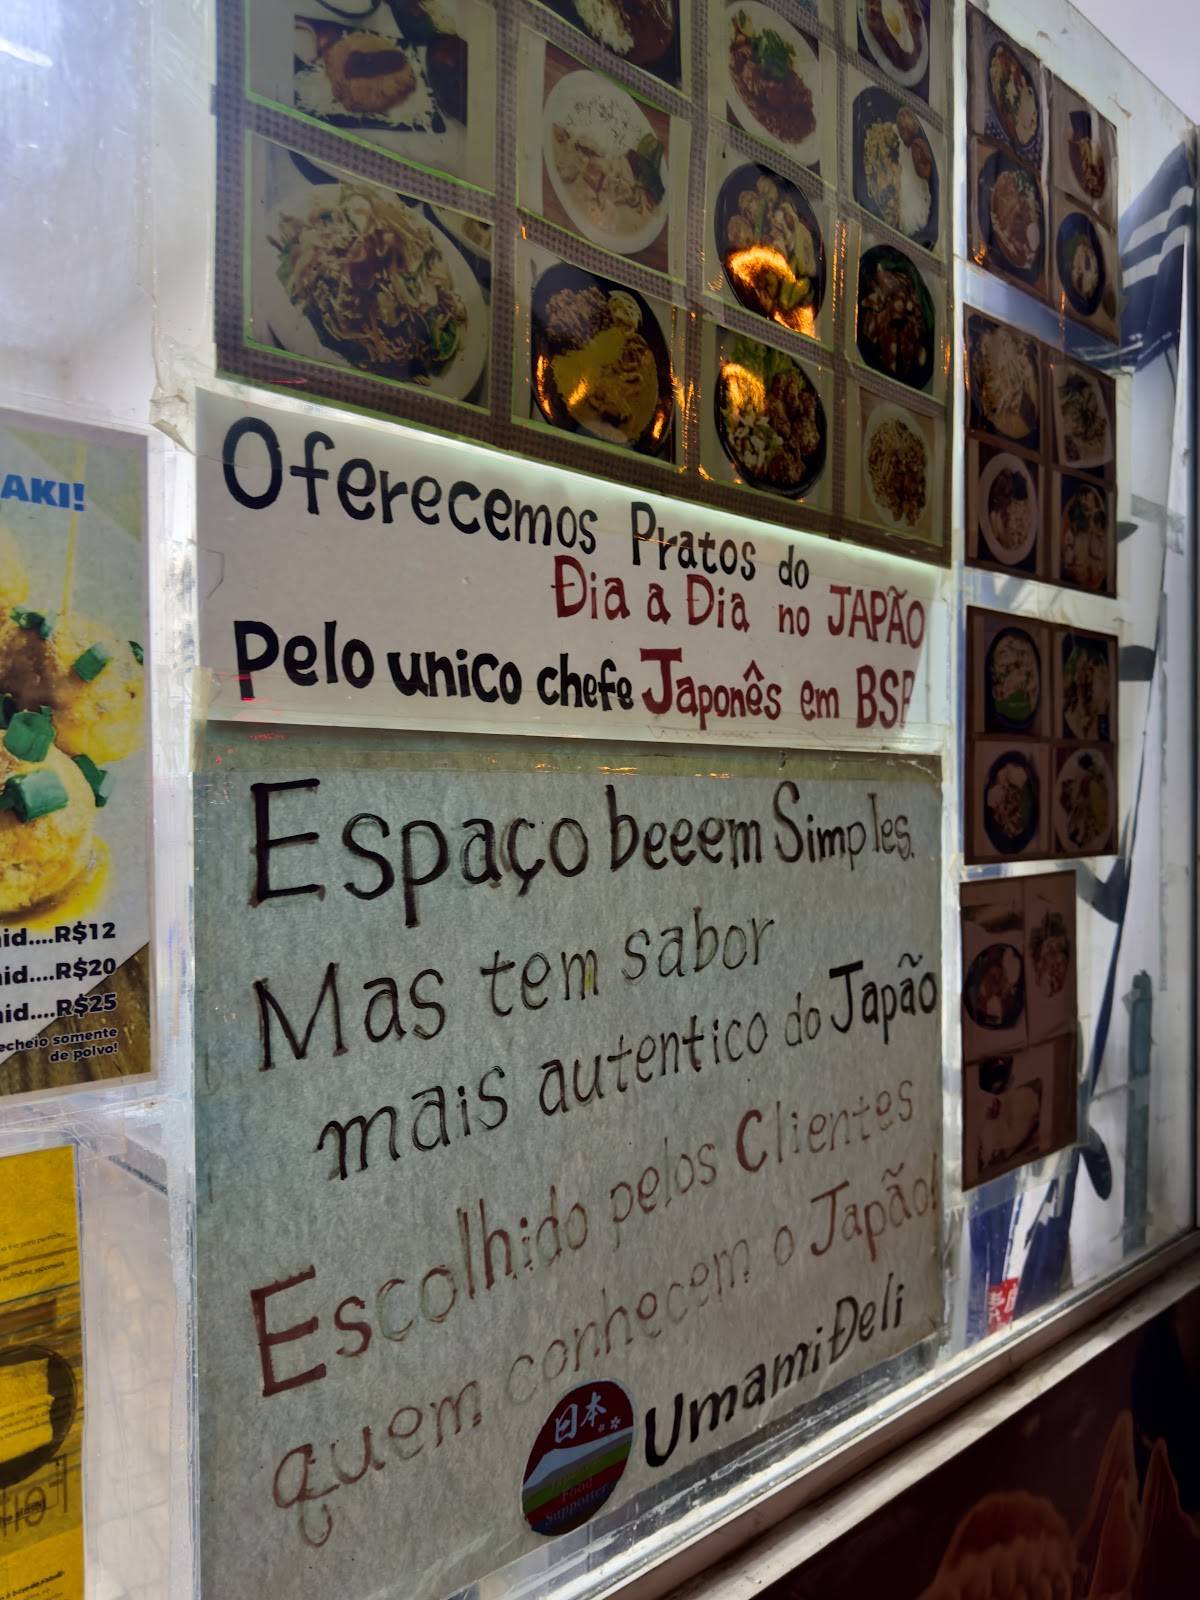 AKI!
id....R$12
id....R$20
id....R$25
echeio somente
de polvo!
Oferecemos Pratos do
Dia a Dia no JAPÃO
Pelo unico chefe Japonês em BSB
Espaço beeem Simples.
Mas tem sabor
mais autentico do Japão
Escolhido pelos Clientes
quem conhecem o Japão!
UmamiDeli
日本
Food
Supporter